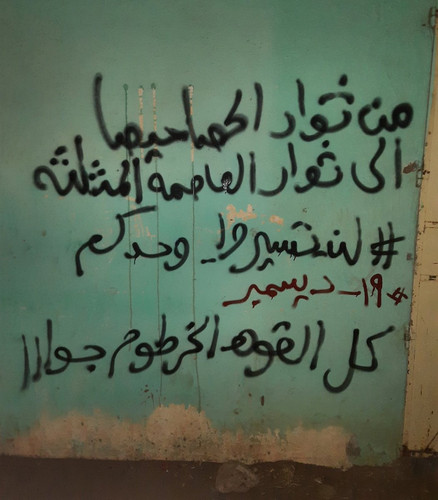 من ثوار الحصاحيصا
الى ثوار العاصمة المثلثه
# لن تسيروا وحدكم
# ١٩ ديسمبر
كل القوه الخرطوم جوااا